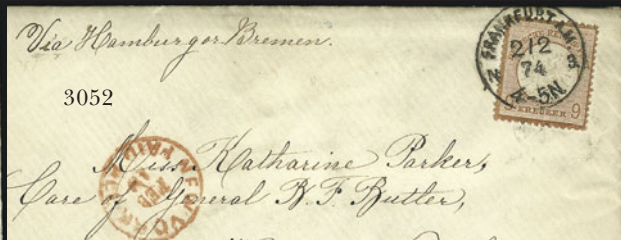 Via Hamburg or Bremen.
FRANKFURT A.M.
2/2
74
4-5N.
9 KREUZER 9
3052
NEW YORK
FEB
PAID ALL
Miss Katharine Parker,
Care of General B. F. Butler,